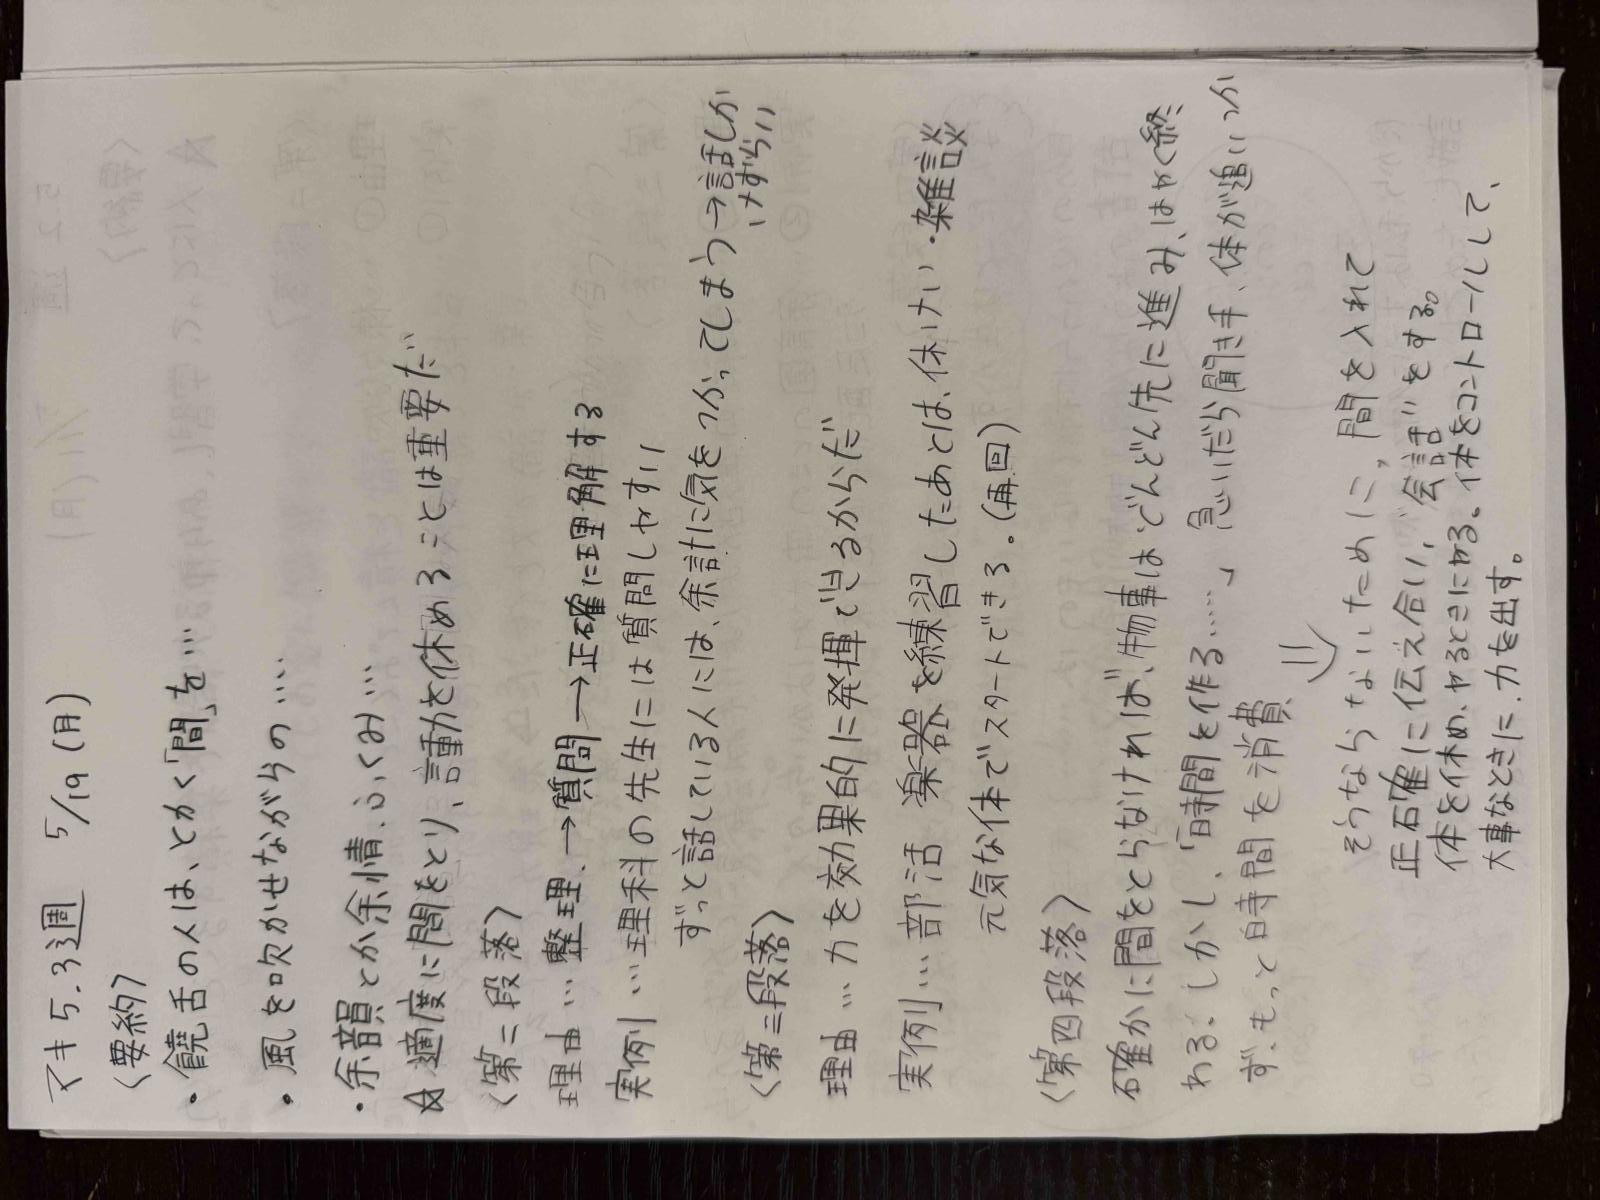 マキ5.3週　5/19(月)
〈要約〉
・饒舌の人は、とかく「間」を…
・風を吹かせながらの….
・余韻とか余情、ふくみ…
☆適度に間をとり、言動を休めることは重要だ
〈第二段落〉
理由…整理.→質問→正確に理解する
実例…理科の先生には質問しやすい
ずっと話している人には、余計に気をつかってしまう→話しか
けずらい
〈第三段落〉
理由…力を効果的に発揮できるからだ
実例…部活 楽器を練習したあとは、休けい・雑談
元気な体でスタートできる。(再回)
〈第四段落〉
確かに間をとらなければ、物事はどんどん先に進み、はやく終
わる。しかし、「時間を作る……」急いだら聞き手、体が追いつか
ず、もっと時間を消費
そうならないしために、間を入れて
正確に伝え合い、会話をする。
体を休め、やるときにやる。体をコントロールして、
大事なときに、力を出す。